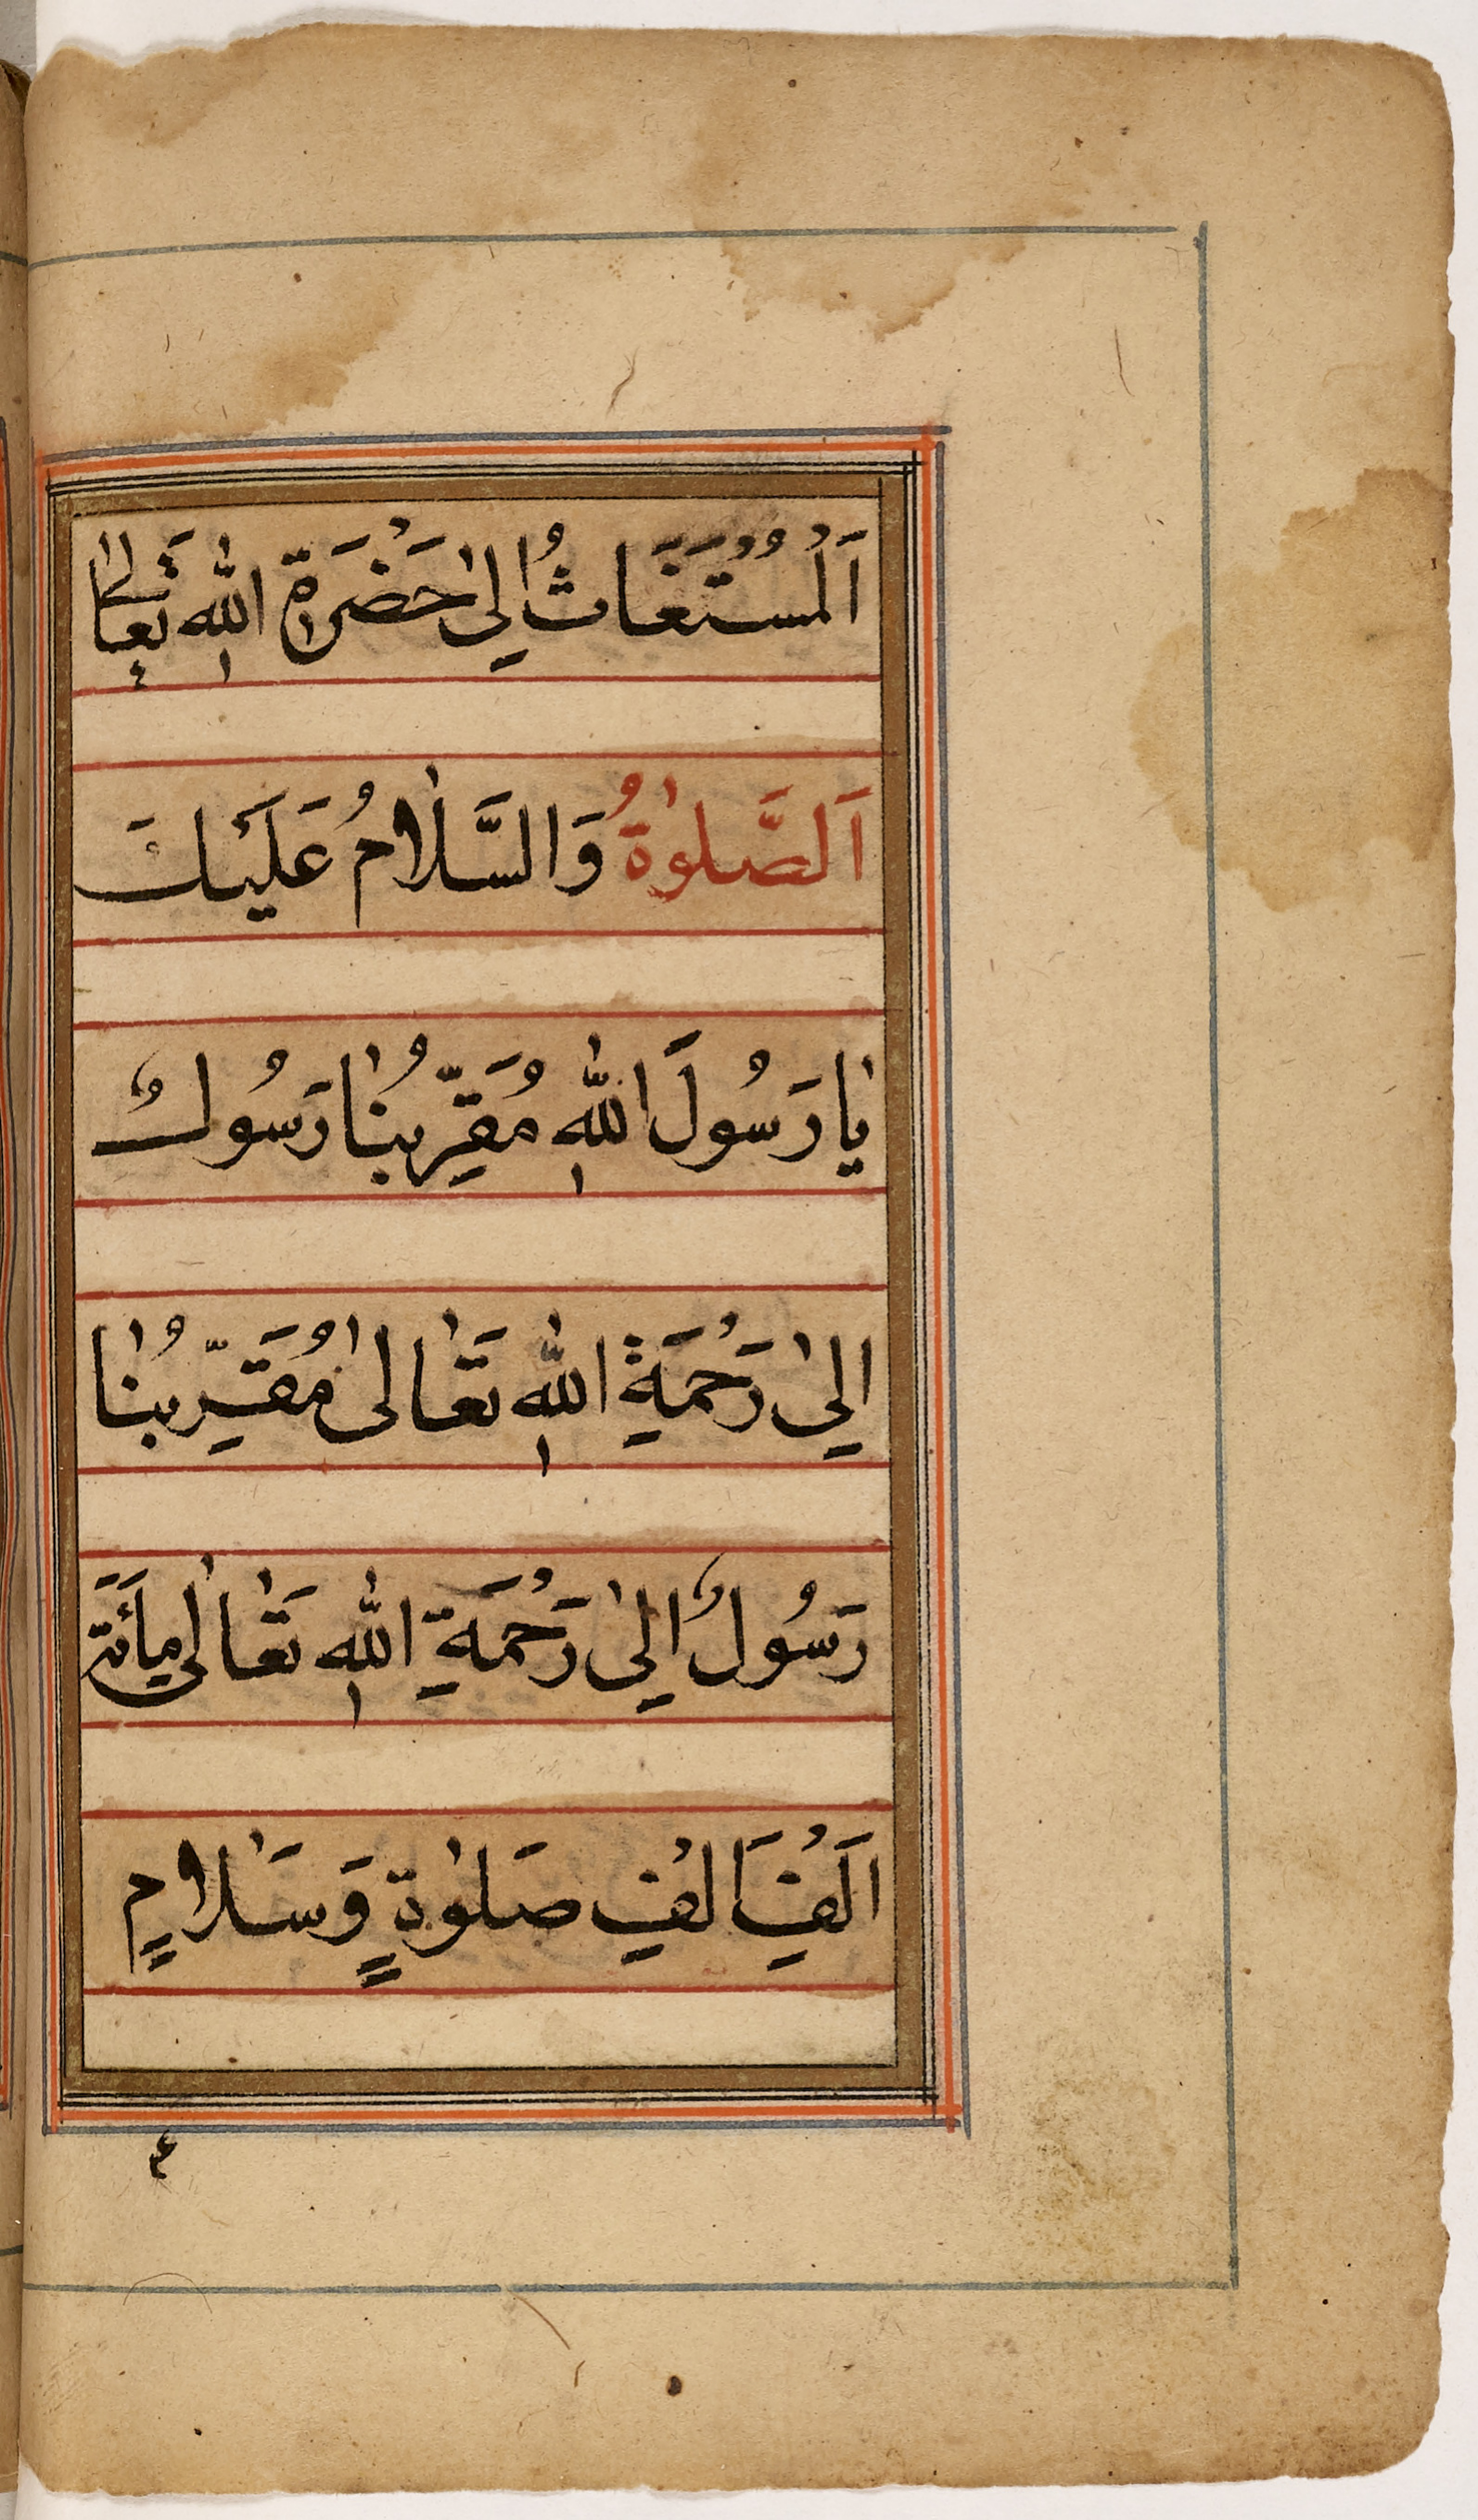 اَلْمُسْتَغَاثُ اِلىٰ حَضْرَةِ اللهِ تَعَالٰى
اَلصَّلٰوةُ وَالسَّلَامُ عَلَيْكَ
يَا رَسُولَ اللهِ مُقَرِّبُنَا رَسُولٌ
اِلىٰ رَحْمَةِ اللهِ تَعَالىٰ مُقَرِّبُنَا
رَسُولٌ اِلىٰ رَحْمَةِ اللهِ تَعَالىٰ مِأَئَةَ
اَلْفِ اَلْفِ صَلٰوةٍ وَّسَلَامٍ